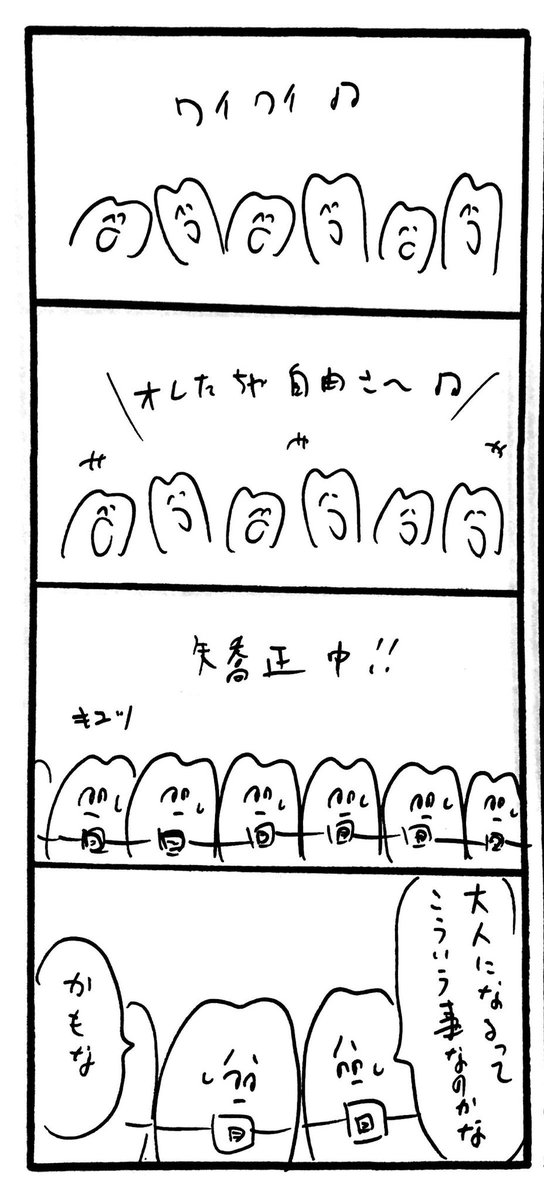 ワイワイ♫
オレたちゃ自由さ〜♫
矯正中!!
キュッ
大人になるって
こういう事なのかな
かもな